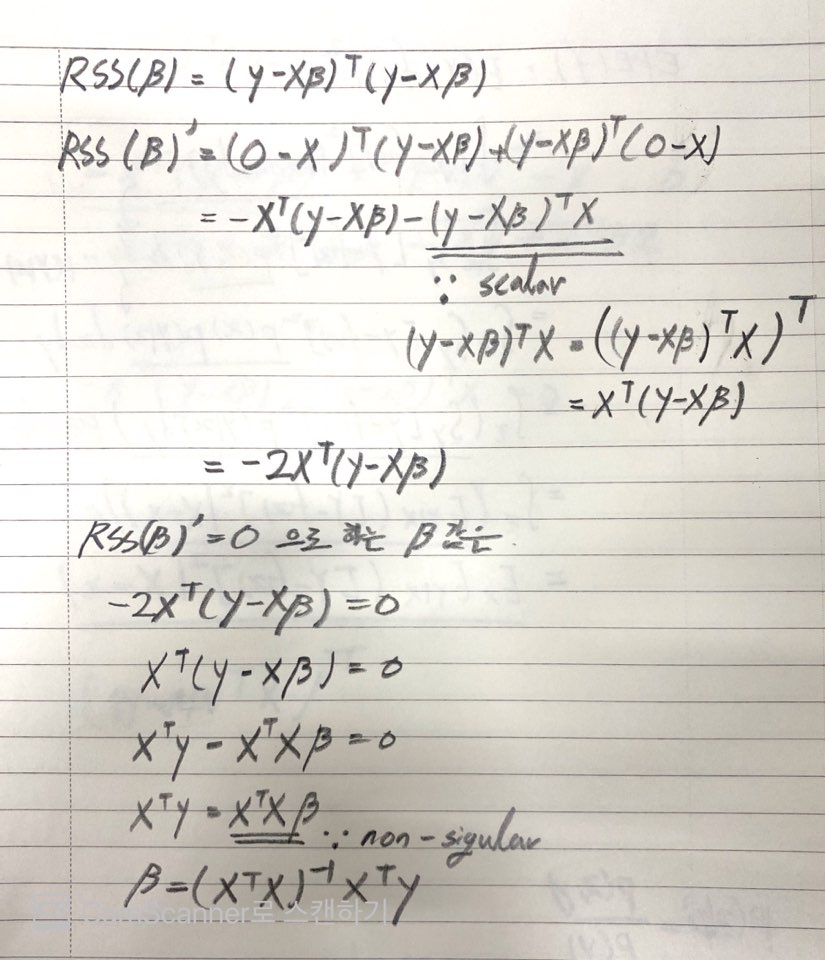 RSS(β) = (y-Xβ)ᵀ(y-Xβ)
RSS(β)' = (0-X)ᵀ(y-Xβ)+(y-Xβ)ᵀ(0-X)
= -Xᵀ(y-Xβ)-(y-Xβ)ᵀX
∵ scalar
(y-Xβ)ᵀX = ((y-Xβ)ᵀX)ᵀ
= Xᵀ(y-Xβ)
= -2Xᵀ(y-Xβ)
RSS(β)' = 0 으로 하는 β 값은
-2Xᵀ(y-Xβ) = 0
Xᵀ(y-Xβ) = 0
Xᵀy - XᵀXβ = 0
Xᵀy = XᵀXβ ∵ non-sigular
β = (XᵀX)⁻¹Xᵀy
CamScanner로 스캔하기